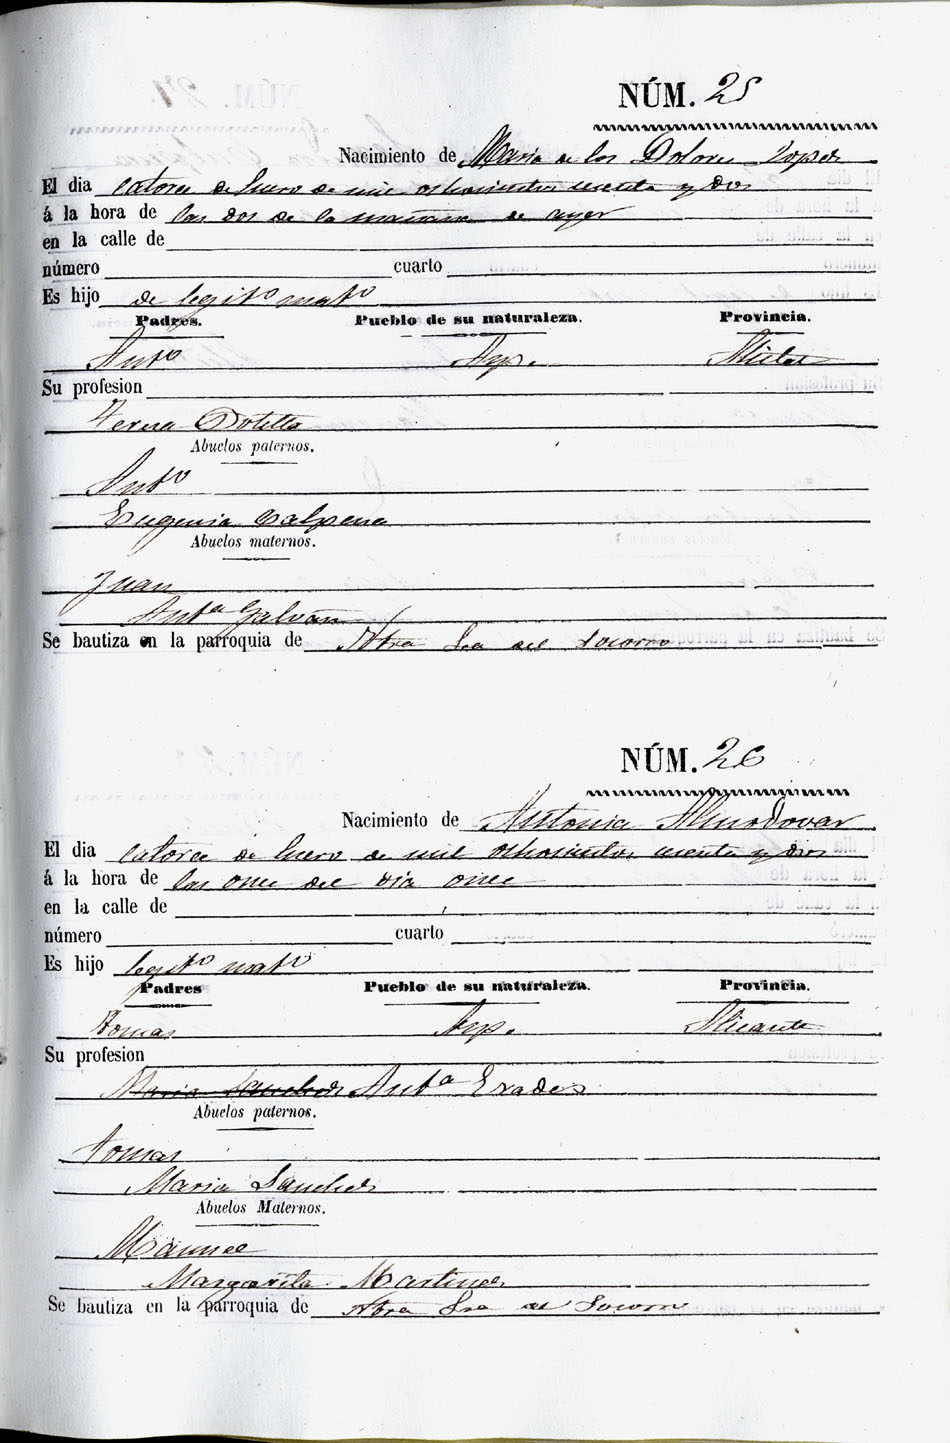 NÚM. 25
Nacimiento de Maria de los Dolores Lopes
El dia catorce de Enero de mil ochocientos y dos
á la hora de las dos de la mañana de ayer
en la calle de
número cuarto
Es hijo de legitº matº
Padres. Pueblo de su naturaleza. Provincia.
Antº Asp. Alicte
Su profesion
Teresa Botella
Abuelos paternos.
Antº
Eugenia Calpena
Abuelos maternos.
Juan
Antª Galvañ
Se bautiza en la parroquia de Ntra Sra del Socorro
NÚM. 26
Nacimiento de Antonia Almodovar
El dia catorce de Enero de mil ochocientos y dos
á la hora de las once del dia once
en la calle de
número cuarto
Es hijo legitº matº
Padres Pueblo de su naturaleza. Provincia.
Tomas Asp. Alicante
Su profesion
Maria Sanches Antª Erades
Abuelos paternos.
Tomas
Maria Sanches
Abuelos Maternos.
Manuel
Margarita Martines
Se bautiza en la parroquia de Ntra Sra del Socorro